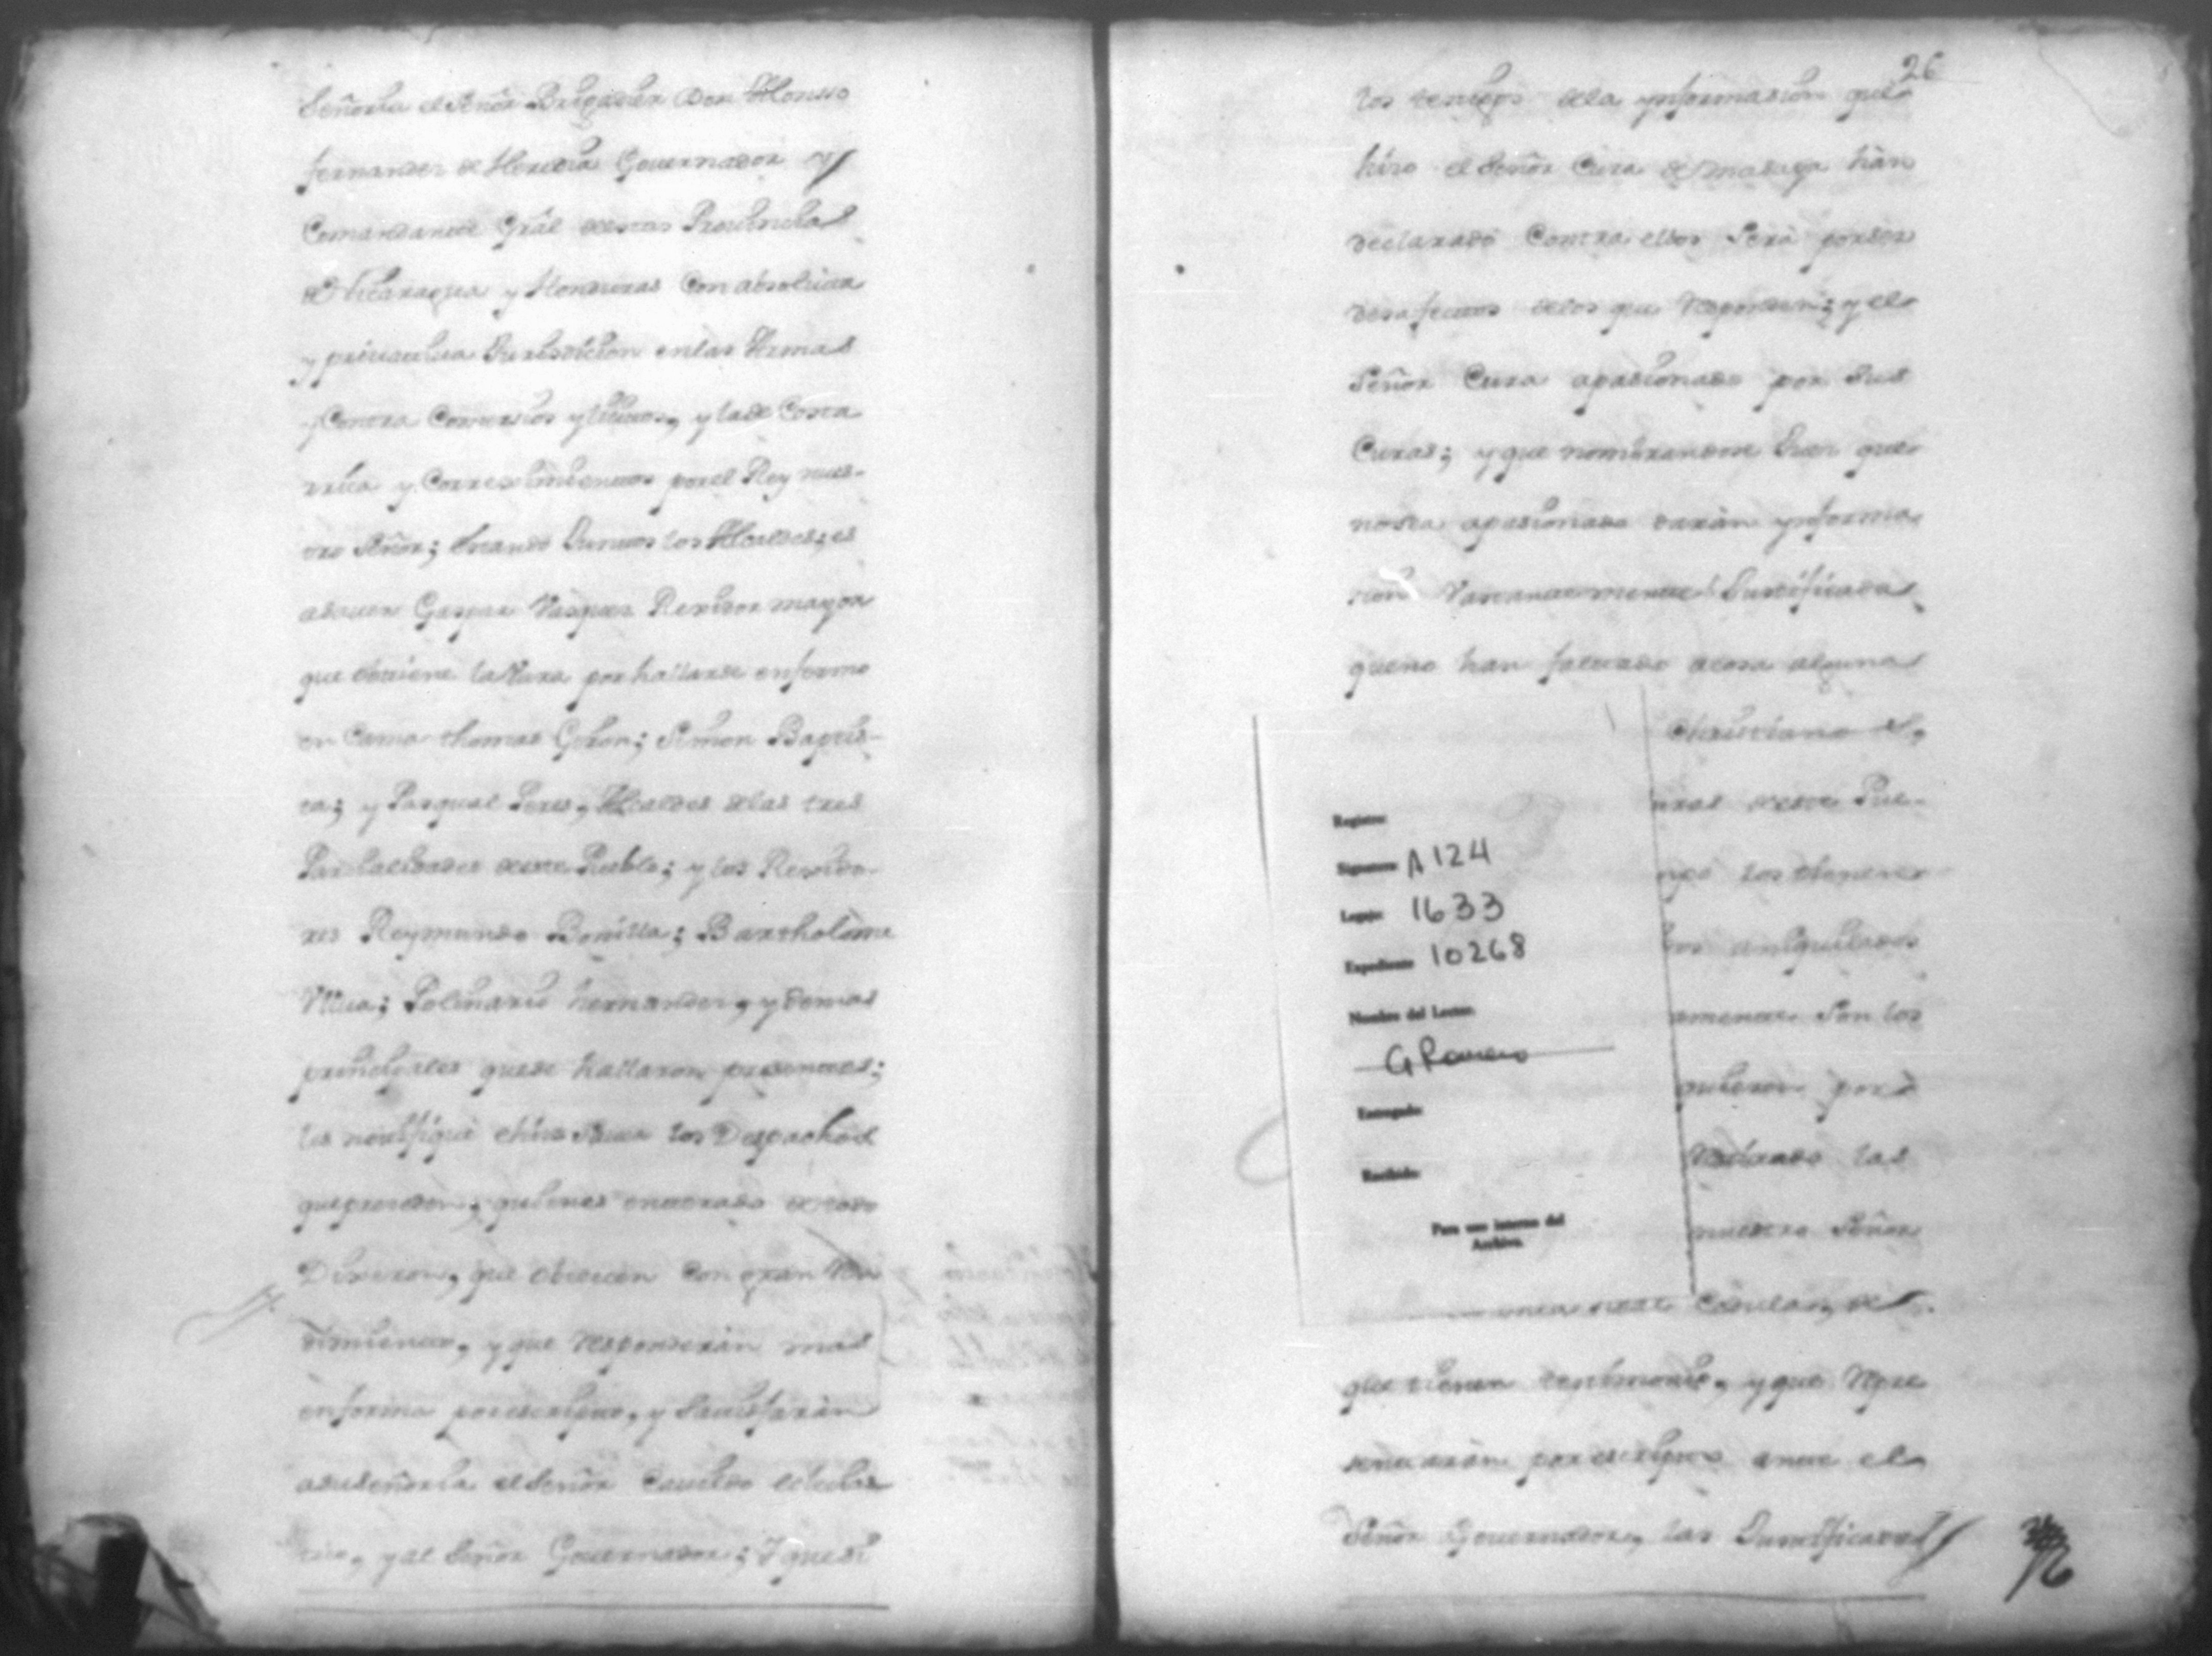 Señoria el Señor Brigadier Don Alonsso
fernandez de Heredia Gouernador y
Comandante Gral destas Prouincias
de Nicaragua y Honduras con absoluta
y priuatiua Jurisdicion enlas Armas
y Contra Comersios yllicitos, y la de Costa
rrica y Correximientos por el Rey nues-
tro Señor; estando Juntos los Alcaldes; es
asauer Gaspar Vasques Rexidor mayor
que obtiene la Vara por hallarse enfermo
en Cama thomas Giron; Simon Baptis-
ta; y Pasqual Peres, Alcaldes delas tres
Parcialidades deeste Pueblo; y los Rexido-
res Reymundo Bonilla; Bartholome
Polinario hernandez, y demas
prinsipales quese hallaron presentes;
les notifiqué ehise sauer los Despachos
quepreseden, quienes enterados de todo
Dixeron, que obedecen con gran Ren
dimiento, y que responderàn mas
enforma porescripto, y Satisfaràn
asuseñoria el Señor Cauildo eclecias
tico, y al Señor Gouernador; Y quesi
26
los testigos dela ynformasion quelo
hizo el Señor Cura de masaya hàn
declarado Contra ellos Serà porser
desafectos delos que responden; y el
Señor Cura apasionado por sus
Curas; y que nombrandose Juez que
nosea apasionado daràn ynforma
sion Vastantemente Justificada
queno han faltado acosa alguna
Christiano
uras deeste Pue-
los thenien
los aniquilados
amente Son los
quieron por
las
nuestro Señor
Cedulas, de
que tienen testimonio, y que Repre
sentaràn por escripto ante el
Señor Gouernador, las Justificadas
Registro:
Signatura: A 124
Legajo: 1633
Expediente 10268
Nombre del Lector:
G Romero
Entregado:
Recibido:
Para uso interno del
Archivo.